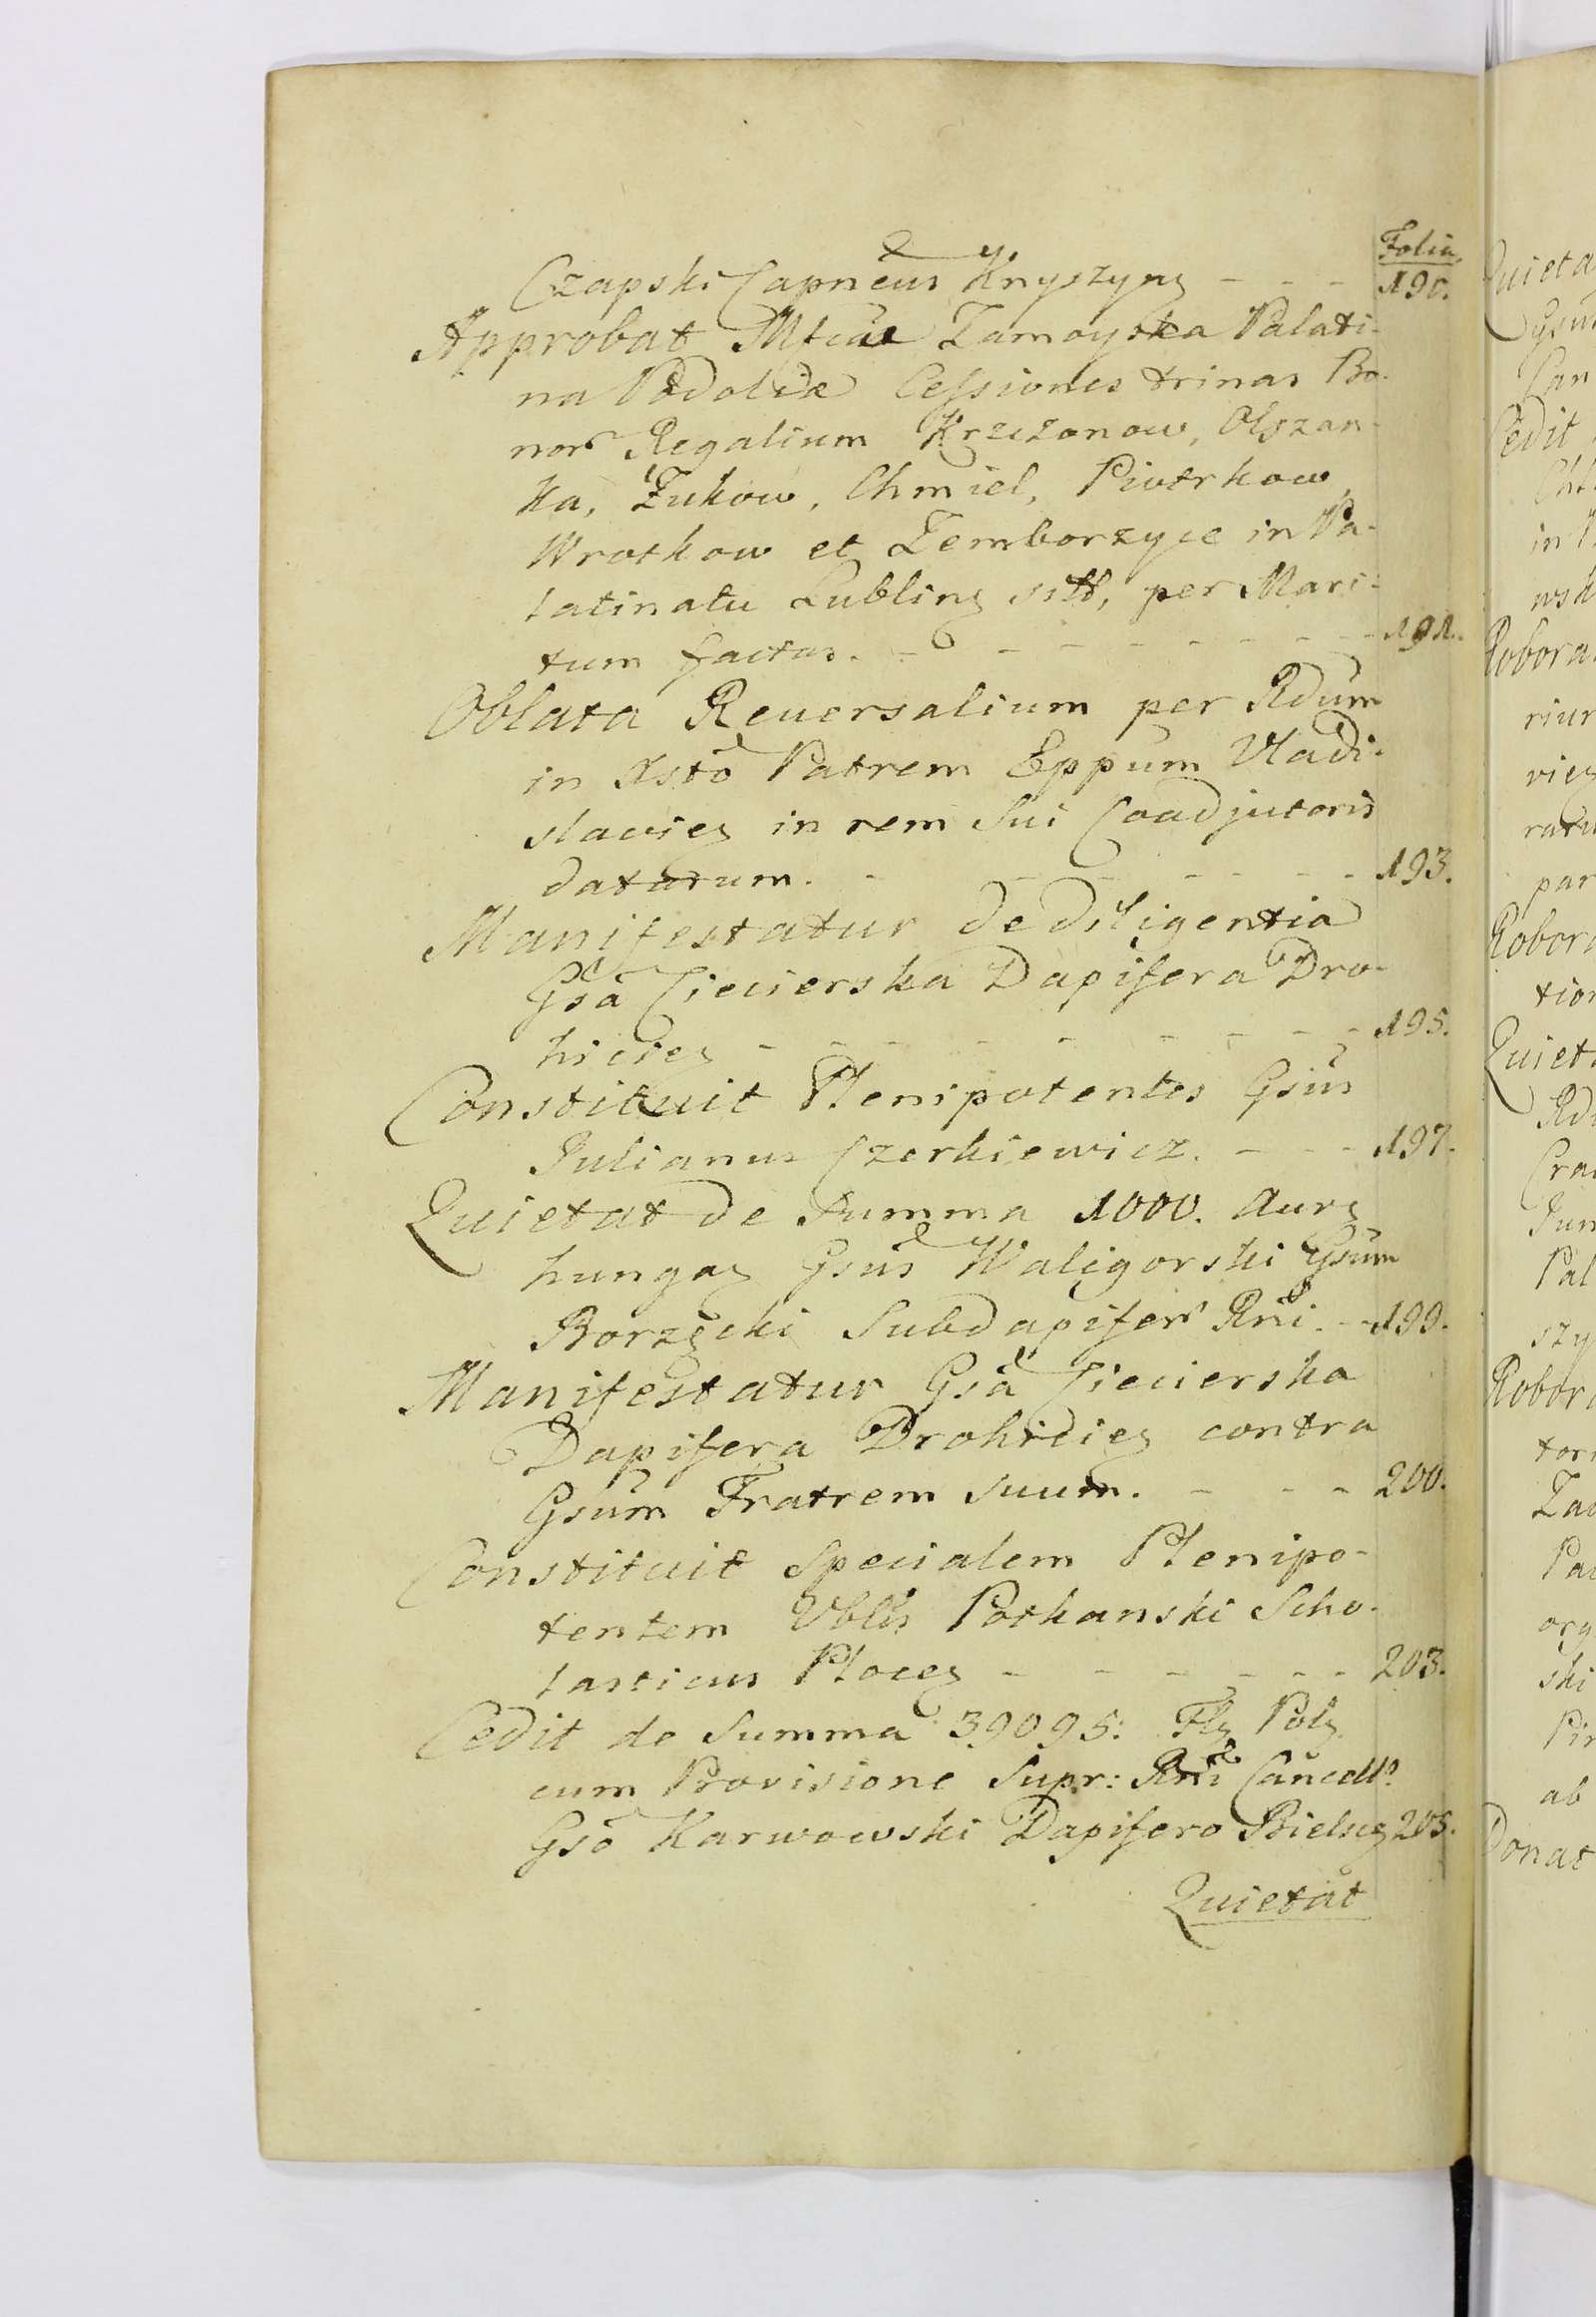 Folia
Czapski Capneus Knyszyng - - - 190.
Approbat Mfica Zamoyska Palati-
na Podoliæ Cessiones trinas Bo-
nor Regalium Krzczonow, Olszan-
ka, Żukow, Chmiel, Piotrkow,
Wrotkow et Zemborzyce in Pa-
latinatu Lubling sitt, per Mari-
tum factas. - - - - - - - 191.
Oblata Reversalium per Rdum
in Xsto Patrem Eppum Vladi-
slavieg in rem Sui Coadjutoris
datarum. - - - - - - - 193.
Manifestatur de diligentia
Gsa Ciecierska Dapifera Dro-
hicieg - - - - - - - - 195.
Constituit Plenipotentes Gsus
Julianus Czerkiewicz. - - - 197.
Quietat de Summa 1000. Aurg
hungag Gsus Waligorski Gsum
Borzęcki Subdapifer Rni. - 199.
Manifestatur Gsa Ciecierska
Dapifera Drohicieg contra
Gsum Fratrem Suum. - - - 200.
Constituit Specialem Plenipo-
tentem Vblis Potkanski Scho-
lasticus Ploceg - - - - - - 203.
Cedit de Summa 39095: Flg Polg
cum Provisione Supr: Rni Cancell?
Gso Karwowski Dapifero Bielseg 205.
Quietat
Quieta
Gsum
Can
Cedit
in
wsk
Robora
riur
vieg
ratu
par
Robora
tion
Quieta
Rdu
Cra
Jun
Pal
szy
Robora
tor
Zad
Pal
org
ski
Pir
ab
Donat